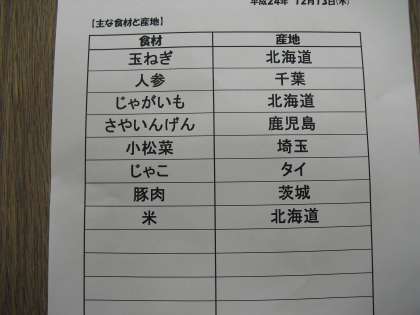 平成24年 12月13日(木)
【主な食材と産地】
食材 産地
玉ねぎ 北海道
人参 千葉
じゃがいも 北海道
さやいんげん 鹿児島
小松菜 埼玉
じゃこ タイ
豚肉 茨城
米 北海道